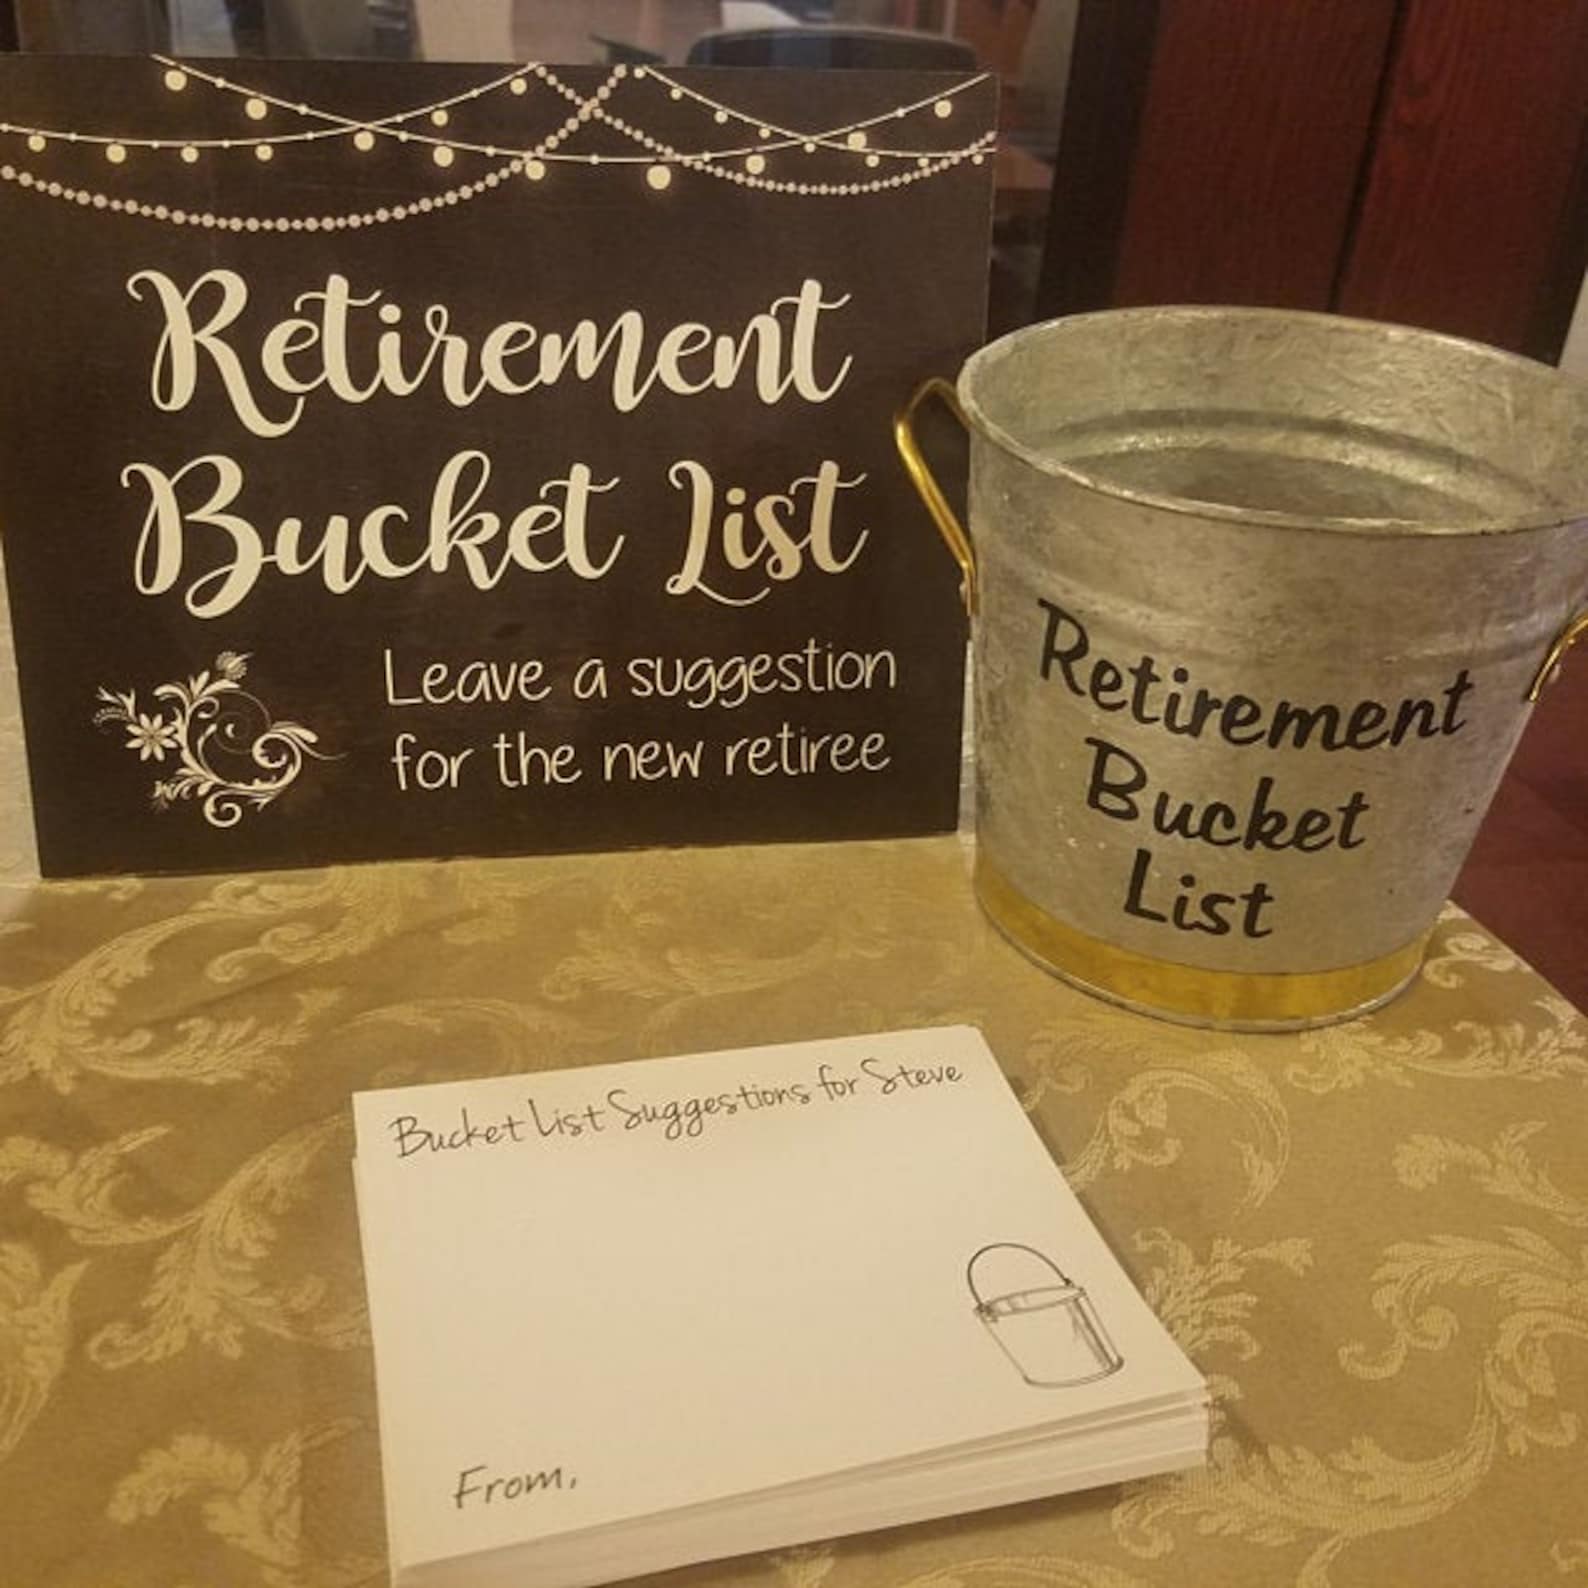 Retirement
Bucket List
Leave a suggestion
for the new retiree
Retirement
Bucket
List
Bucket List Suggestions for Steve
From,